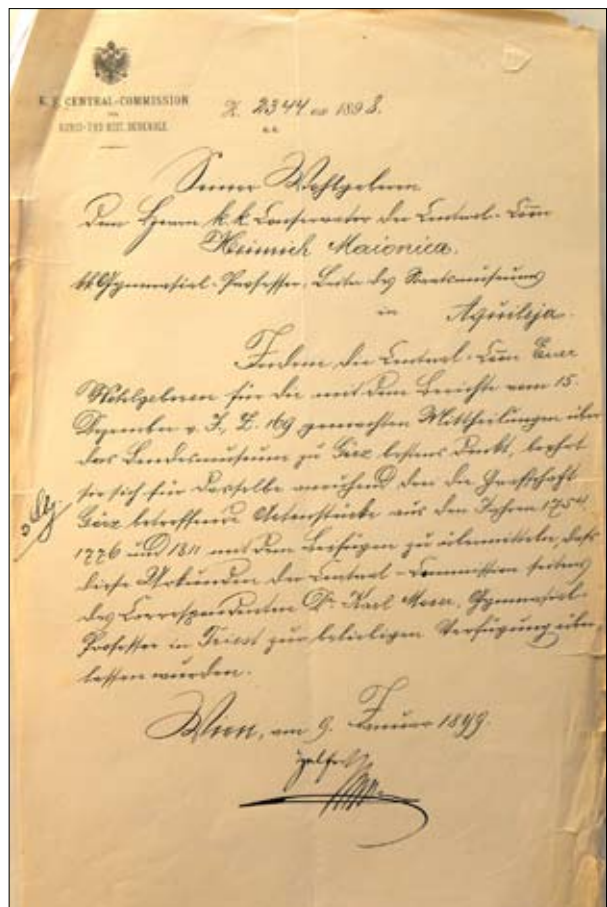 K. K. CENTRAL-COMMISSION
FÜR
KUNST- UND HIST. DENKMALE.
Z. 2344 ex 1898.
Seiner Wohlgeboren
dem Herrn k. k. Conservator der Central-Comm
Heinrich Maionica.
kk Gymnasial-Professor, Leiter des Staatsmuseums
in Aquileja.
Indem die Central-Comm Euer
Wohlgeboren für die mit dem Berichte vom 15.
Dezember v. J., Z. 169 gemachten Mittheilungen über
das Landesmuseum zu Görz bestens dankt, beehrt
sie sich für dasselbe anruhend den die Grafschaft
Görz betreffende Actenstücke aus den Jahren 1754
1776 und 1811 mit dem Beifügen zu übermitteln, daß
diese Urkunden der Central-Commission seitens
des Correspondenten Dr. Karl Moser, Gymnasial-
Professor in Triest zur beliebigen Verfügung über
lassen wurden.
Wien, am 9. Januar 1899.